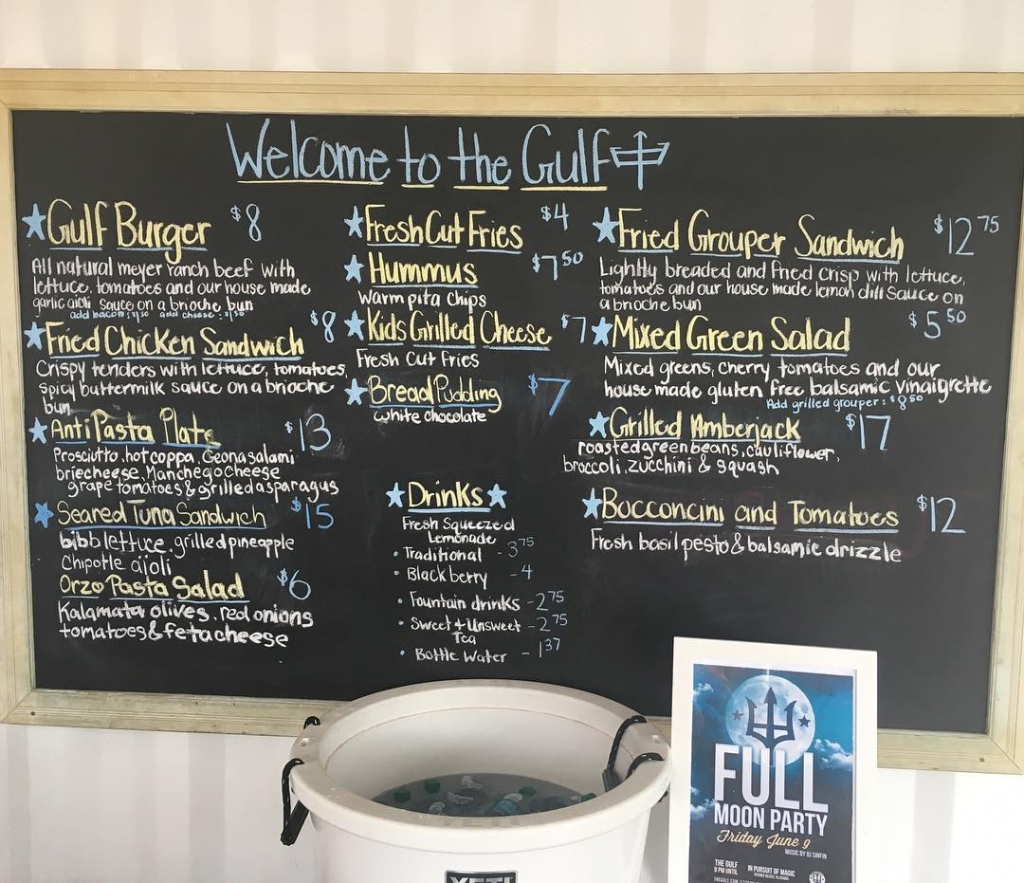 Welcome to the Gulf
Gulf Burger $8
All natural meyer ranch beef with
lettuce, tomatoes and our house made
garlic aioli sauce on a brioche bun
add bacon: $1.50 add cheese: $1.50
Fried Chicken Sandwich $8
Crispy tenders with lettuce, tomatoes,
spicy buttermilk sauce on a brioche
bun
AntiPasta Plate $13
Prosciutto, hot coppa, Geona salami
brie cheese, Manchego cheese
grape tomatoes & grilled asparagus
Seared Tuna Sandwich $15
bibb lettuce, grilled pineapple
Chipotle aioli
Orzo Pasta Salad $6
Kalamata olives, red onions
tomatoes & feta cheese
Fresh Cut Fries $4
Hummus $7.50
Warm pita chips
Kids Grilled Cheese $7
Fresh Cut Fries
Bread Pudding $7
white chocolate
Drinks
Fresh Squeezed
Lemonade
• Traditional - 3.75
• Blackberry - 4
• Fountain drinks - 2.75
• Sweet & Unsweet - 2.75
Tea
• Bottle Water - 1.37
Fried Grouper Sandwich $12.75
Lightly breaded and fried crisp with lettuce,
tomatoes and our house made lemon dill sauce on
a brioche bun
Mixed Green Salad $5.50
Mixed greens, cherry tomatoes and our
house made gluten free balsamic vinaigrette
Add grilled grouper: $8.50
Grilled Amberjack $17
roasted green beans, cauliflower,
broccoli, zucchini & squash
Bocconcini and Tomatoes $12
Fresh basil pesto & balsamic drizzle
FULL
MOON PARTY
Friday June 9
MUSIC BY DJ SINFIN
THE GULF
9 PM UNTIL
IN PURSUIT OF MAGIC
YETI